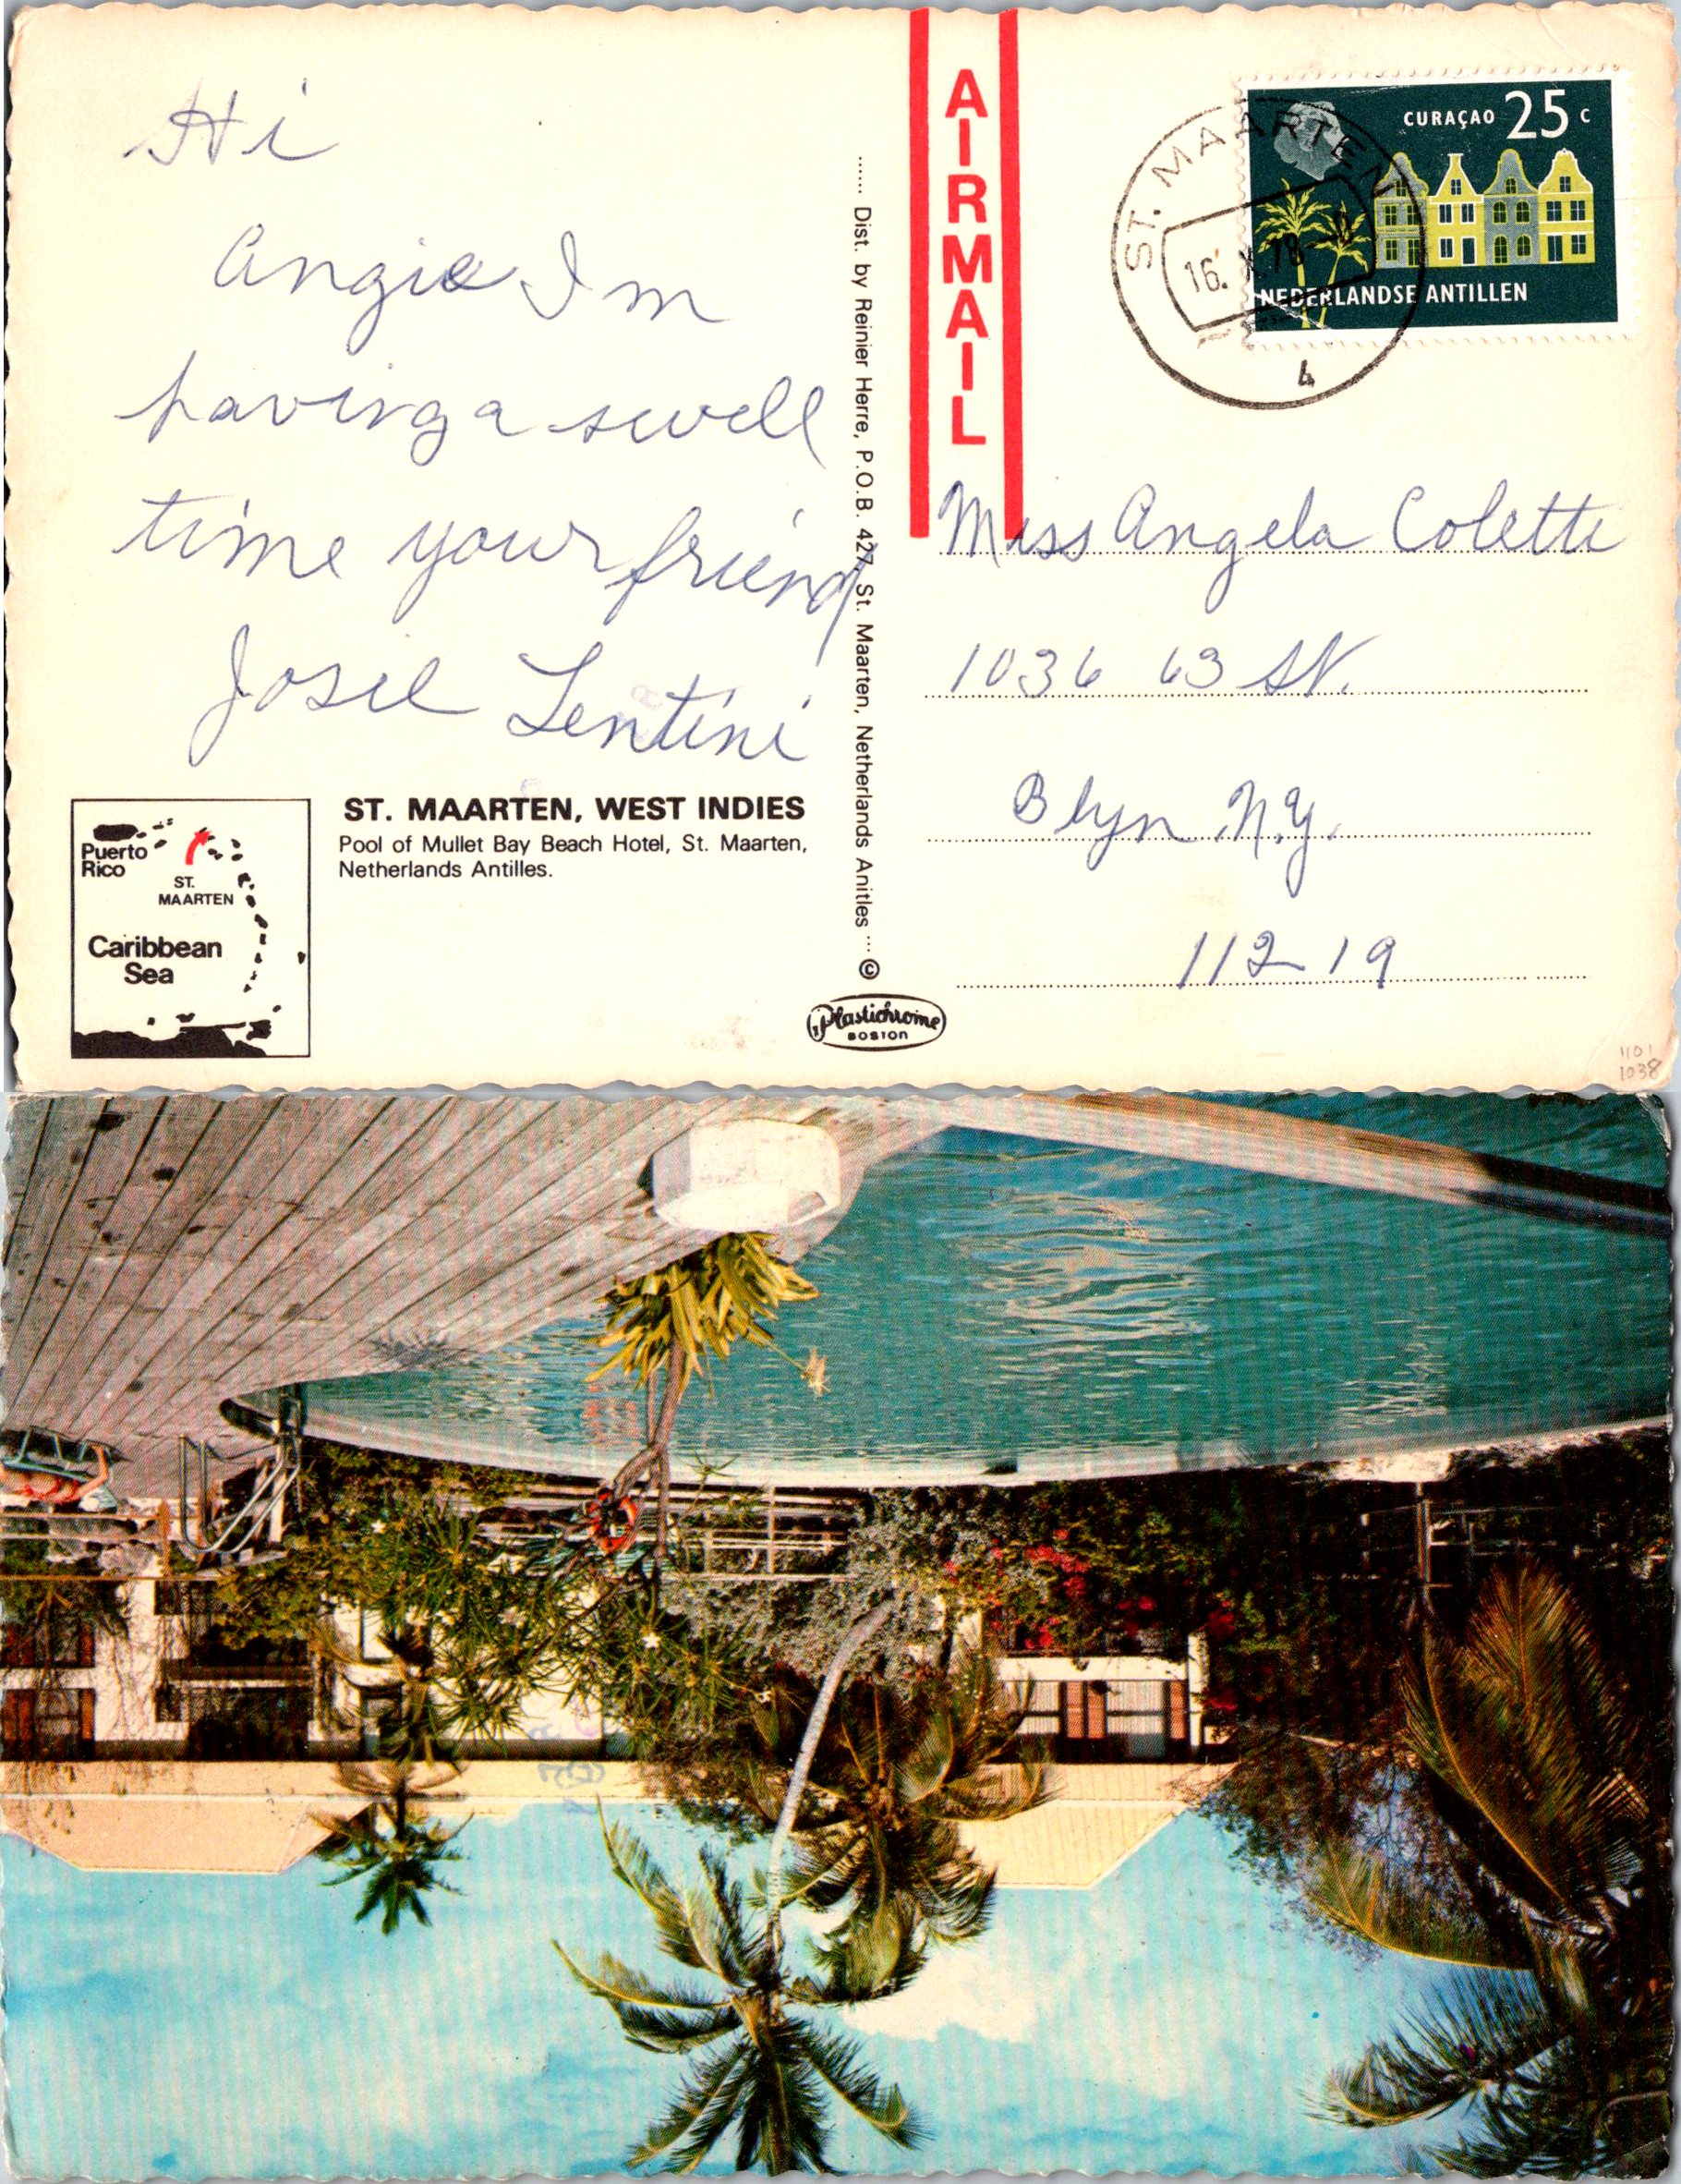 Hi
Angie Im
having a swell
time your friend
Josie Lentini
ST. MAARTEN, WEST INDIES
Pool of Mullet Bay Beach Hotel, St. Maarten,
Netherlands Antilles.
Puerto
Rico
ST.
MAARTEN
Caribbean
Sea
Dist. by Reinier Herre, P.O.B. 427, St. Maarten, Netherlands Anitles ©
Plastichrome
BOSTON
AIRMAIL
ST. MAARTEN
16. X.78
4
CURAÇAO 25 C
NEDERLANDSE ANTILLEN
Miss Angela Coletti
1036 63 St.
Blyn N.Y.
11219
1101
1038